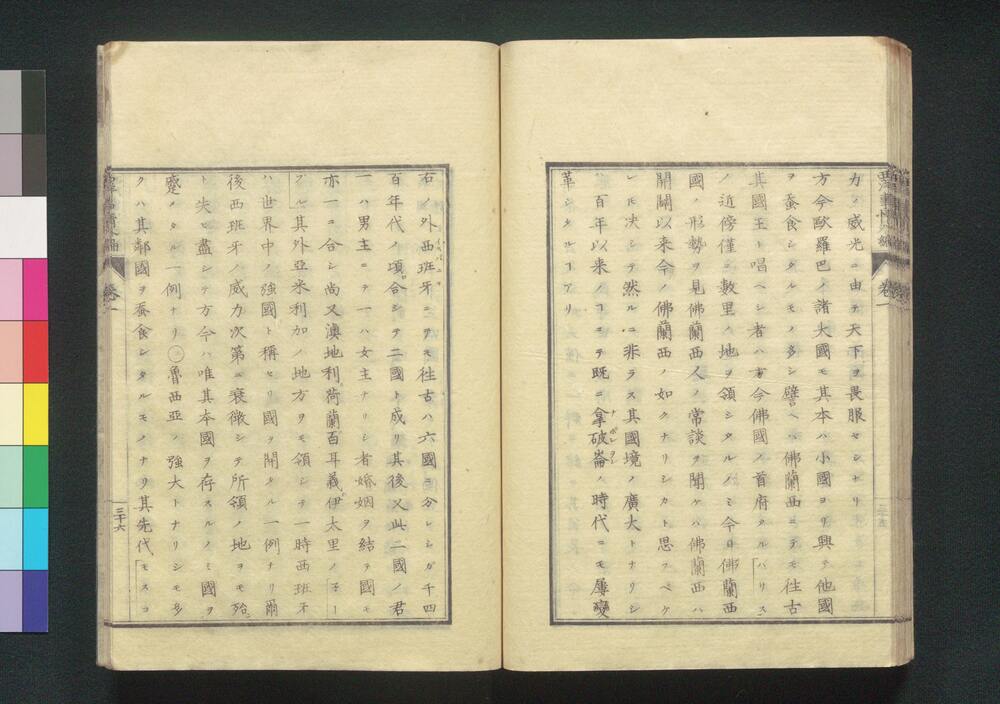 力ノ威光ニ由テ天下ヲ畏服セシナリ
方今歐羅巴ノ諸大國モ其本ハ小國ヨリ興テ他國
ヲ蚕食シタルモノ多シ譬ヘハ佛蘭西ニテモ往古
其國王ト唱ヘシ者ハ方今佛國ノ首府タル「パリス」
ノ近傍僅ニ數里ノ地ヲ領シタルノミ今日佛蘭西
國ノ形勢ヲ見佛蘭西人ノ常談ヲ聞ケハ佛蘭西ハ
開闢以来今ノ佛蘭西ノ如クナリシカト思フヘケ
レモ决シテ然ルニ非ラス其國境ノ廣大トナリシ
ハ百年以来ノヿニテ既ニ拿破崙ノ時代ニモ屡變
革シタルヿアリ
右ノ外西班牙ニテモ往古ハ六國ニ分レシガ千四
百年代ノ頃合シテ二國ト成リ其後又此二國ノ君
一ハ男主ニテ一ハ女主ナリシ者婚姻ヲ結テ國モ
亦一ニ合シ尚又澳地利荷蘭百耳義伊太里ノ「ナー
プル」其外亞米利加ノ地方ヲモ領シテ一時西班牙
ハ世界中ノ強國ト稱セリ國ヲ開タル一例ナリ爾
後西班牙ノ威力次第ニ衰微シテ所領ノ地ヲモ殆
ト失ヒ盡シテ方今ハ唯其本國ヲ存スルノミ國ヲ
蹙メタル一例ナリ○魯西亞ノ強大トナリシモ多
クハ其鄰國ヲ蚕食シタルモノナリ其先代「モスコ
卷一
三十六